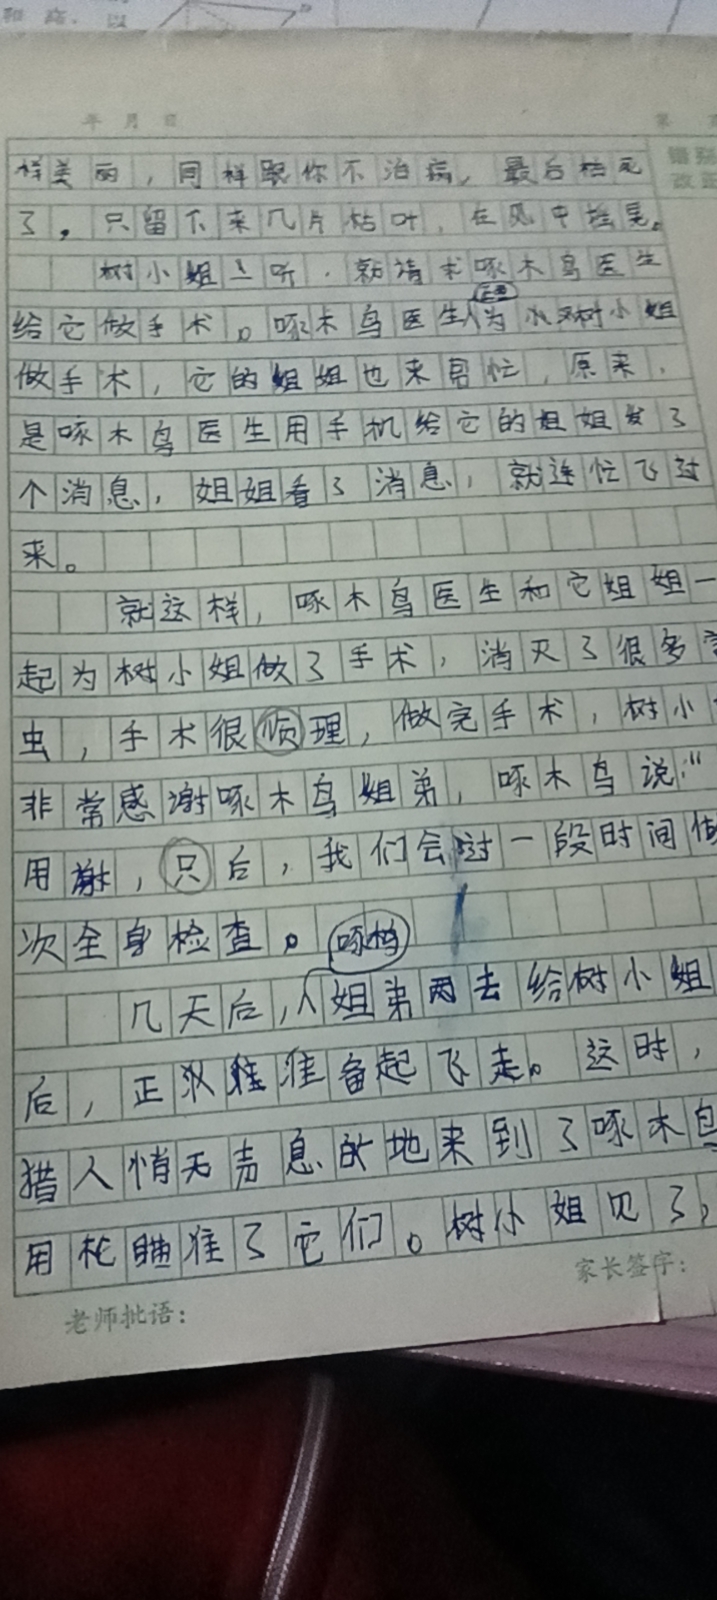 和 高. 以
年 月 日
第 页
错别
改正
样美丽，同样跟你不治病，最后枯死
了。只留下来几片枯叶，在风中摇晃。
树小姐一听，就请求啄木鸟医生
正要
给它做手术。啄木鸟医生为树小姐
做手术，它的姐姐也来帮忙，原来，
是啄木鸟医生用手机给它的姐姐发了
个消息，姐姐看了消息，就连忙飞过
来。
就这样，啄木鸟医生和它姐姐一
起为树小姐做了手术，消灭了很多害
虫，手术很顺理，做完手术，树小
非常感谢啄木鸟姐弟，啄木鸟说：“
用谢，只后，我们会过一段时间做
次全身检查。
啄木鸟
几天后，姐弟两去给树小姐
后，正准备起飞走。这时，
猎人悄无声息的地来到了啄木鸟
用枪瞄准了它们。树小姐见了，
家长签字：
老师批语：